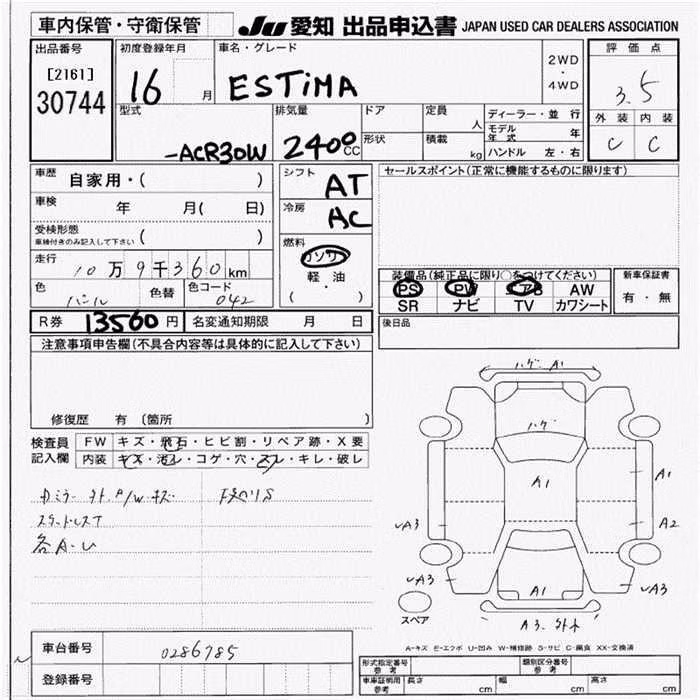 車内保管・守衛保管 JU 愛知 出品申込書 JAPAN USED CAR DEALERS ASSOCIATION
出品番号 初度登録年月 車名・グレード 2WD・4WD 評価点
[2161] 16 月 ESTiMA 3.5
30744 外装 内装
型式 排気量 ドア 定員 人 ディーラー・並行 C C
-ACR30W 2400 CC 形状 積載 kg モデル年式 年
ハンドル 左・右
車歴 自家用・( ) シフト AT セールスポイント(正常に機能するものに限ります)
車検 年 月( 日) 冷房 AC
受検形態 車検付きのみ記入して下さい ( ) 燃料
走行 10万9千360km ガソリン 軽・油 ( )
装備品(純正品に限り○をつけてください) 新車保証書
PS PW エアB AW 有・無
SR ナビ TV カワシート
色 パール 色替 色コード 042
R券 13560円 名変通知期限 月 日 後日品
注意事項申告欄(不具合内容等は具体的に記入して下さい)
修復歴 有 〔箇所 〕
検査員記入欄 FW キズ・飛石・ヒビ割・リペア跡・X要
内装 キズ・汚レ・コゲ・穴・スレ・キレ・破レ
各A-U
ハゲ A1
ハゲ
A1
A1
A2
A3
A3
A1
A3
A3
スペア
A-キズ E-エクボ U-凹み W-補修跡 S-サビ C-腐食 XX-交換済
車台番号 0286785
登録番号
形式指定番号 参考 類別区分番号 参考
車車証明用 参考 長さ cm 幅 cm 高さ cm